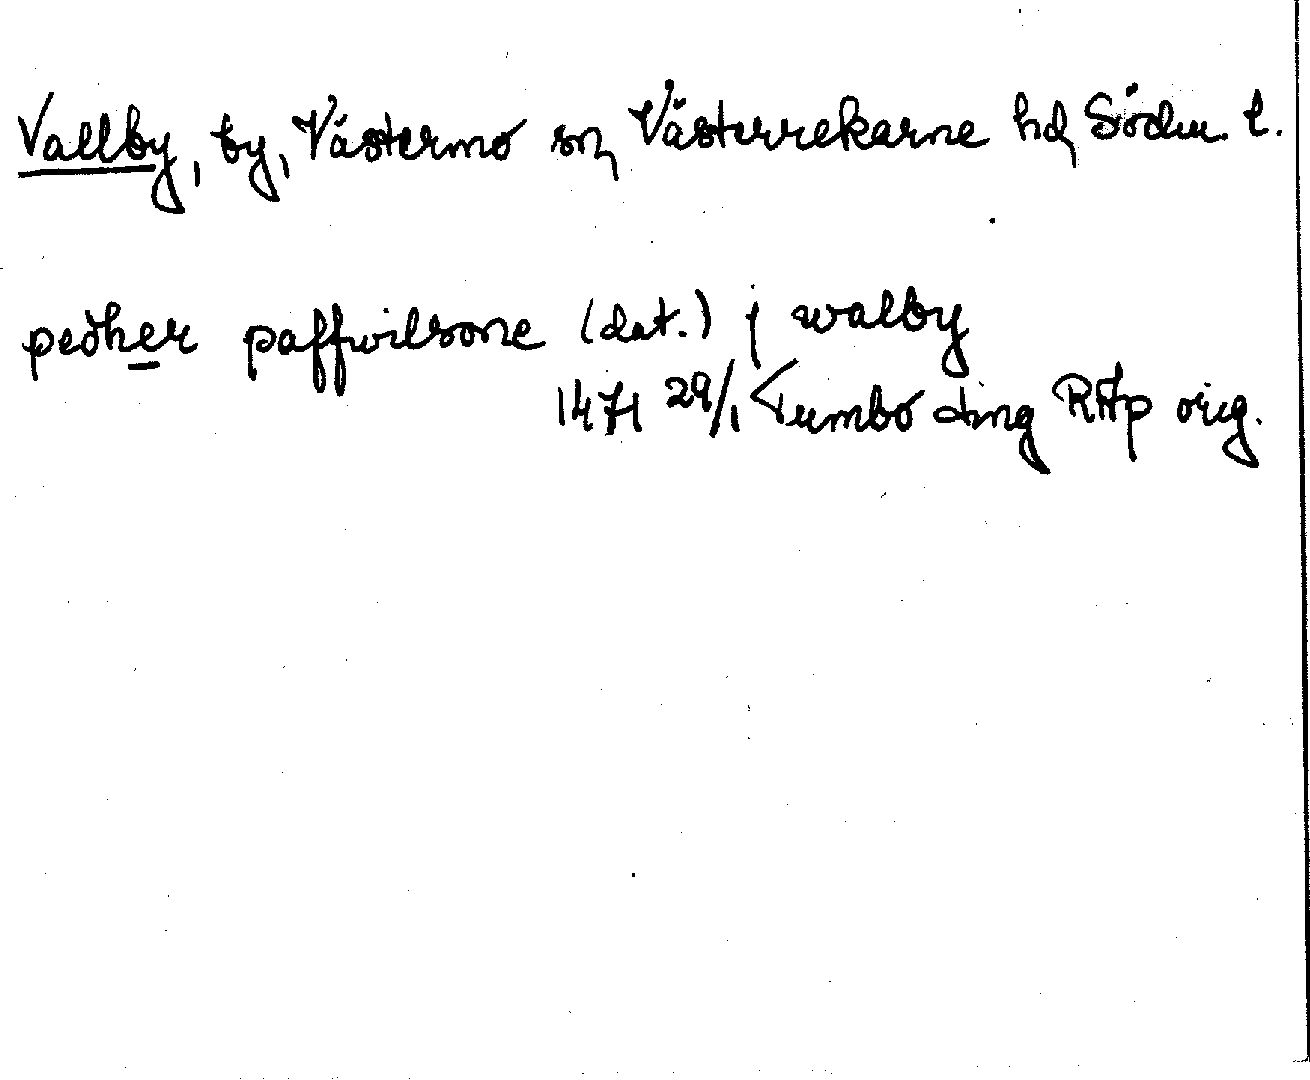 Vallby, by, Västermo sn, Västerrekarne hd, Söderm. l.
pedher paffwilsone (dat.) j walby
1471 29/1 Tumbo ting RAp orig.